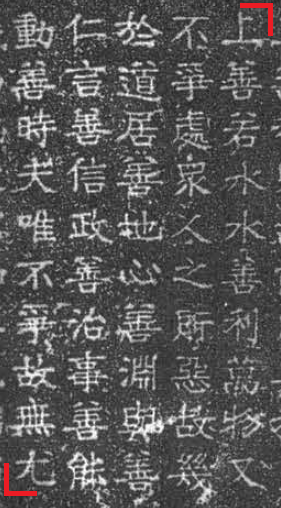 上善若水水善利萬物又
不爭處衆人之所惡故幾
於道居善地心善淵與善
仁言善信政善治事善能
動善時夫唯不爭故無尤